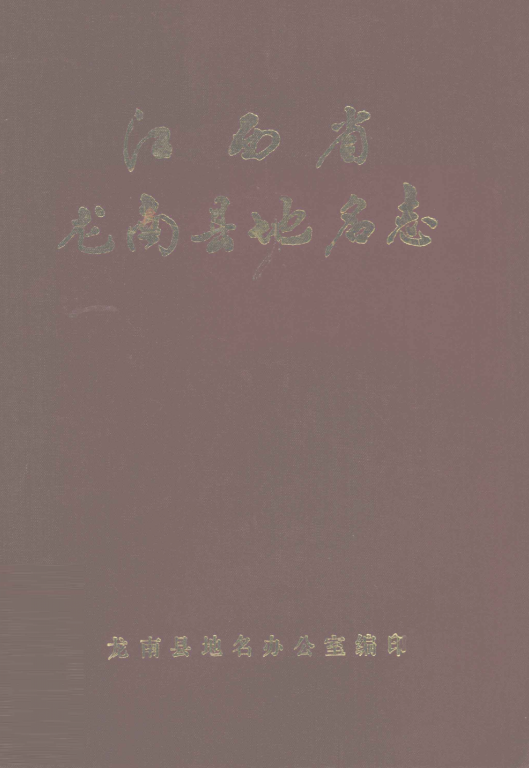 江西省
龙南县地名志
龙南县地名办公室编印